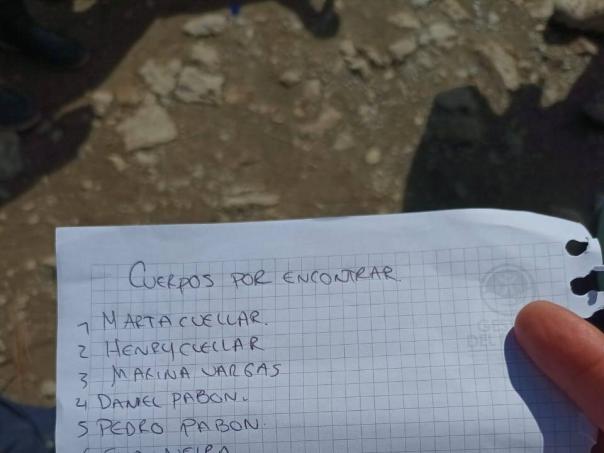 CUERPOS POR ENCONTRAR
1 MARTA CUELLAR.
2 HENRY CUELLAR
3 MARINA VARGAS
4 DANIEL PABON.
5 PEDRO PABON.